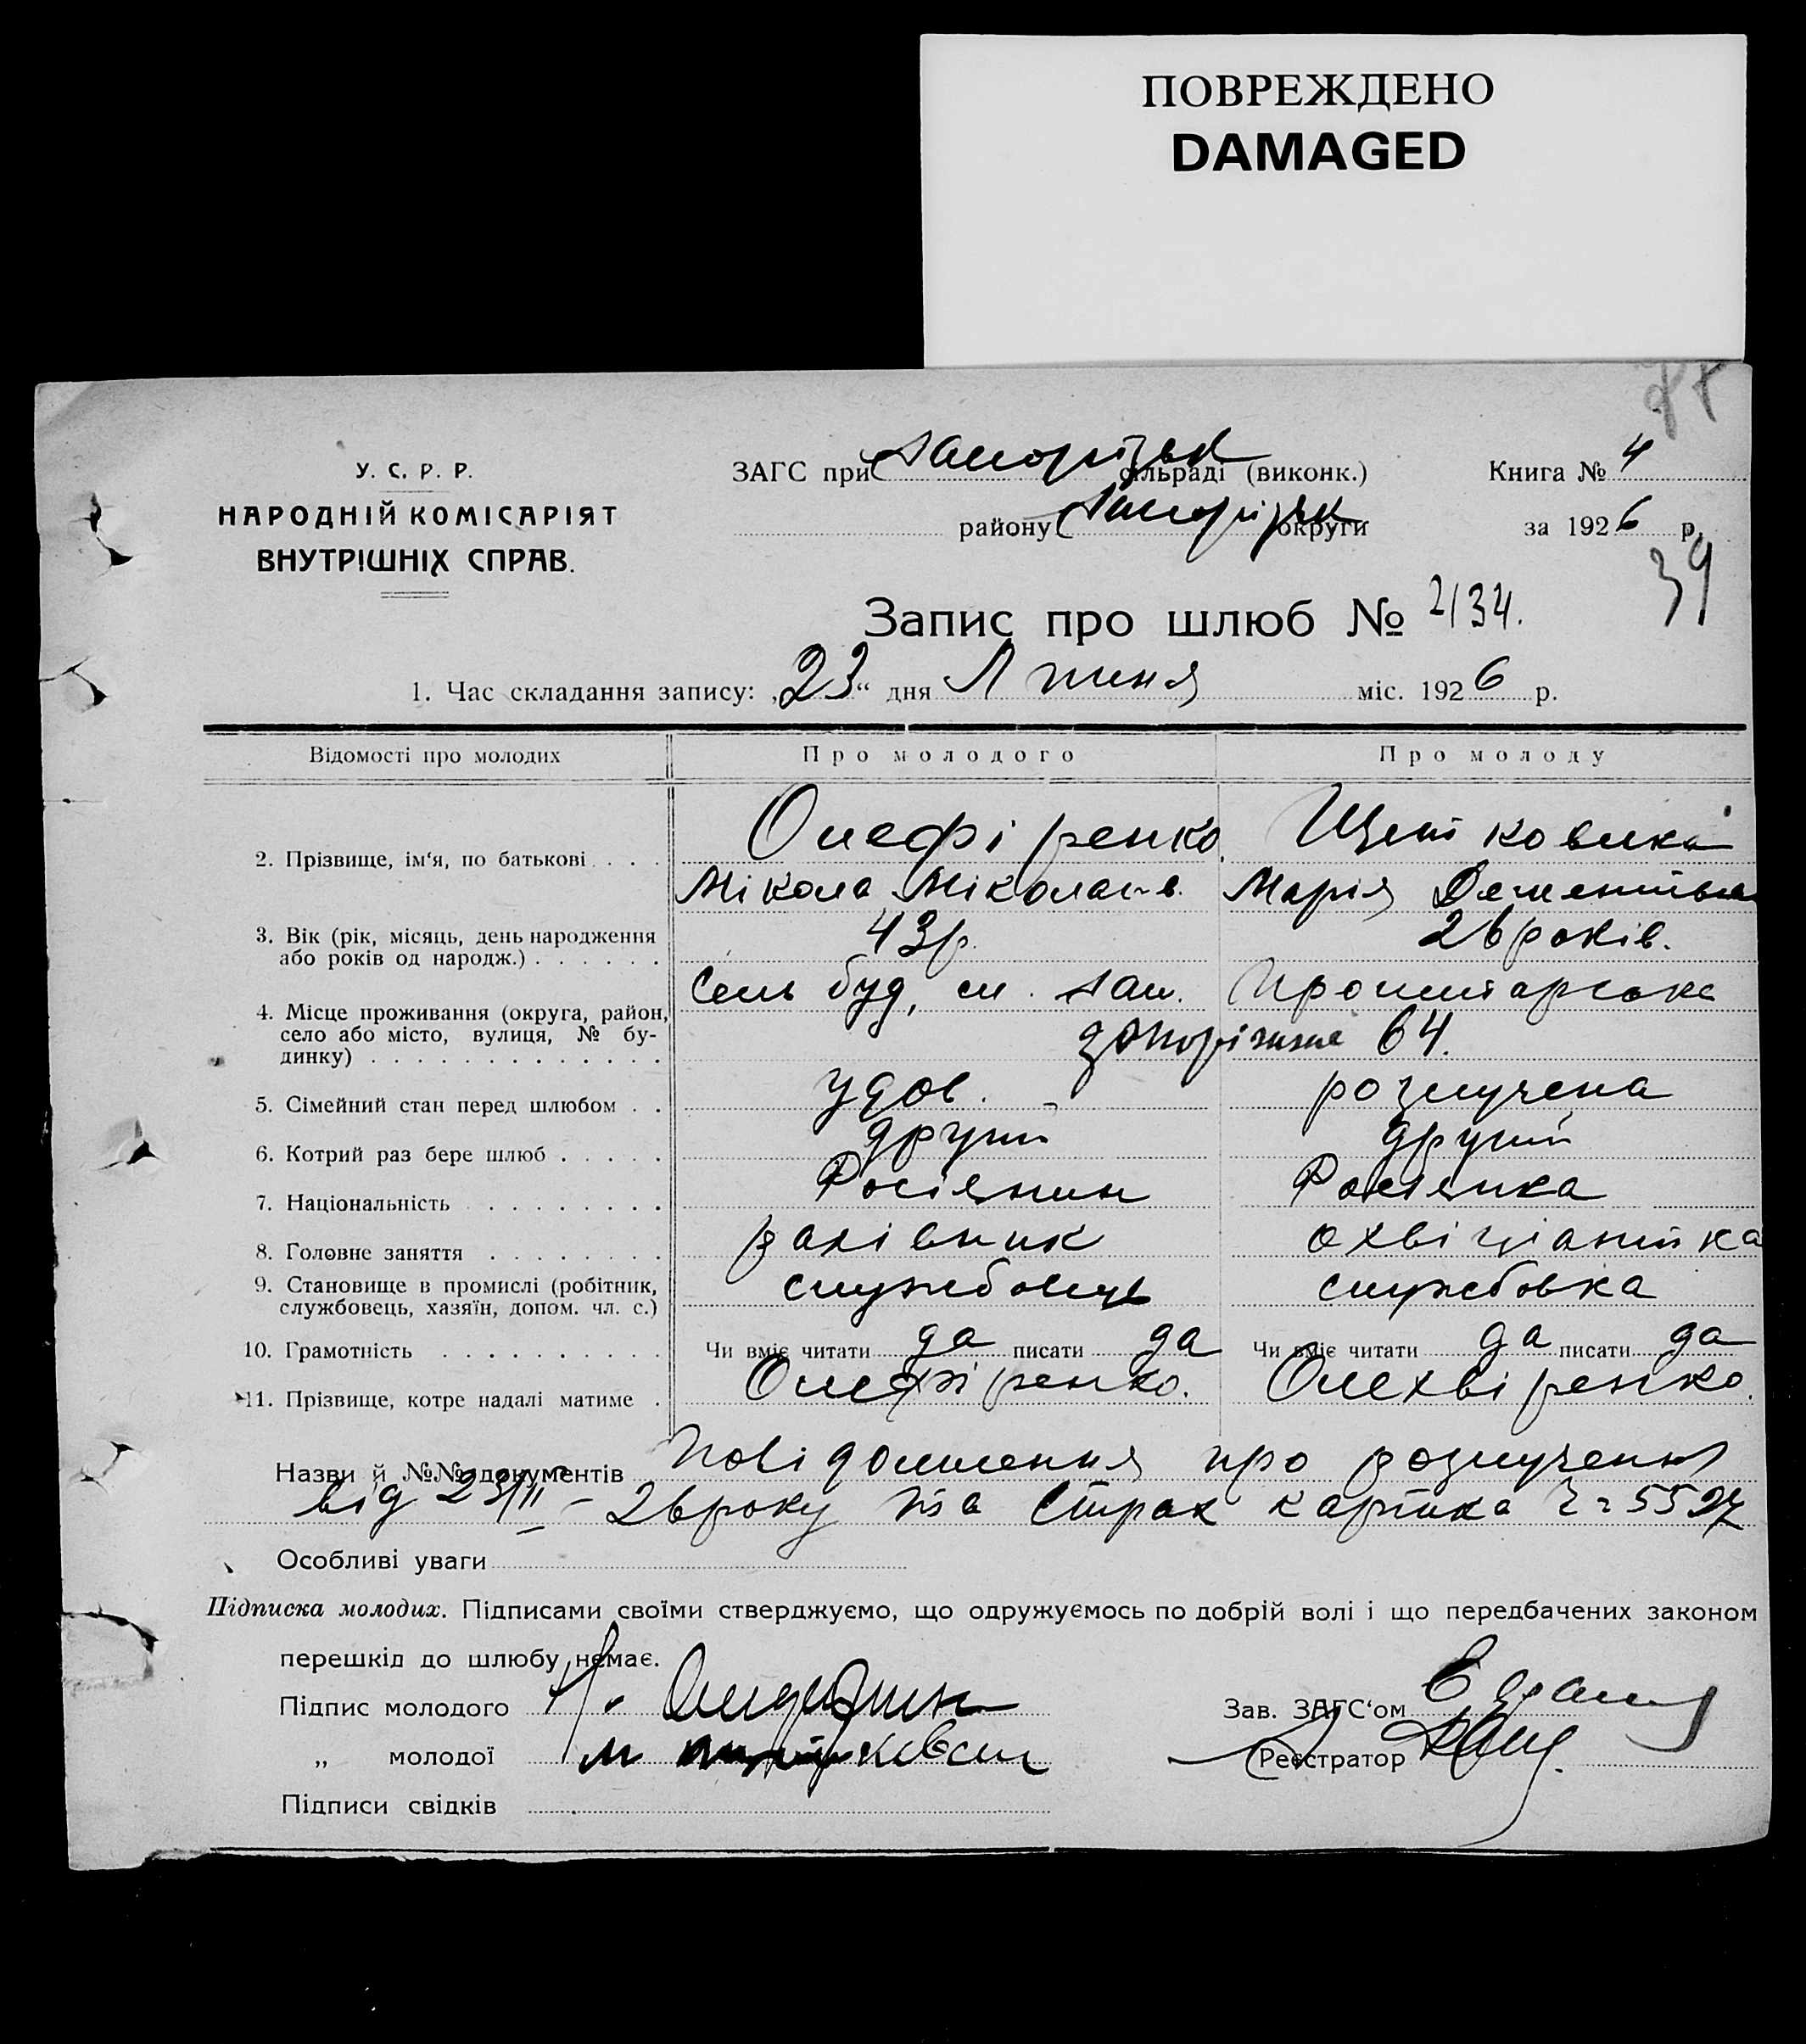 ПОВРЕЖДЕНО
DAMAGED
У. С. Р. Р.
НАРОДНІЙ КОМІСАРІЯТ
ВНУТРІШНІХ СПРАВ.
ЗАГС при Запорізьк сільраді (виконк.)
Книга № 4
району Запорізьк округи
за 1926 р.
39
Запис про шлюб № 2/34.
1. Час складання запису: „23“ дня Липня міс. 1926 р.
Відомості про молодих
Про молодого
Про молоду
2. Прізвище, ім'я, по батькові . . . .
Олефіренко
Микола Миколаєв.
Марія Дементівна
3. Вік (рік, місяць, день народження
або років од народж.) . . . . . .
43 р.
26 років.
4. Місце проживання (округа, район,
село або місто, вулиця, № бу-
динку) . . . . . . . . . . . . .
буд, ст. Зап.
Пролетарська
Запоріжжя 64.
5. Сімейний стан перед шлюбом . .
удов.
розлучена
6. Котрий раз бере шлюб . . . . .
другий
другий
7. Національність . . . . . . . . .
Росіянин
Росіянка
8. Головне заняття . . . . . . . .
рахівник
охвіціантка
9. Становище в промислі (робітник,
службовець, хазяїн, допом. чл. с.)
службовець
службовка
10. Грамотність . . . . . . . . . .
Чи вміє читати да писати да
Чи вміє читати да писати да
11. Прізвище, котре надалі матиме .
Олефіренко.
Олехвіренко.
Назви й №№ документів Повідомлення про розлучення
від 23/II – 26 року та Страх картка 5527
Особливі уваги
Підписка молодих. Підписами своїми стверджуємо, що одружуємось по добрій волі і що передбачених законом
перешкід до шлюбу немає.
Підпис молодого
Зав. ЗАГС'ом
„ молодої
Реєстратор
Підписи свідків